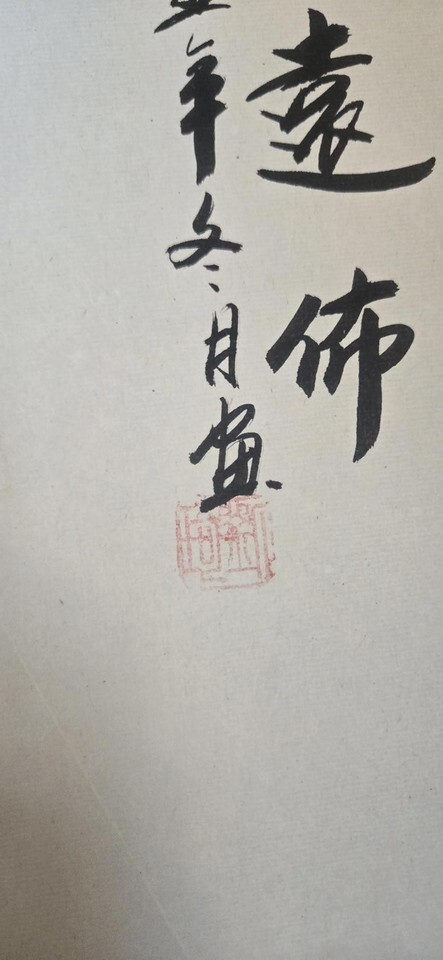 遠佈
年冬月畫